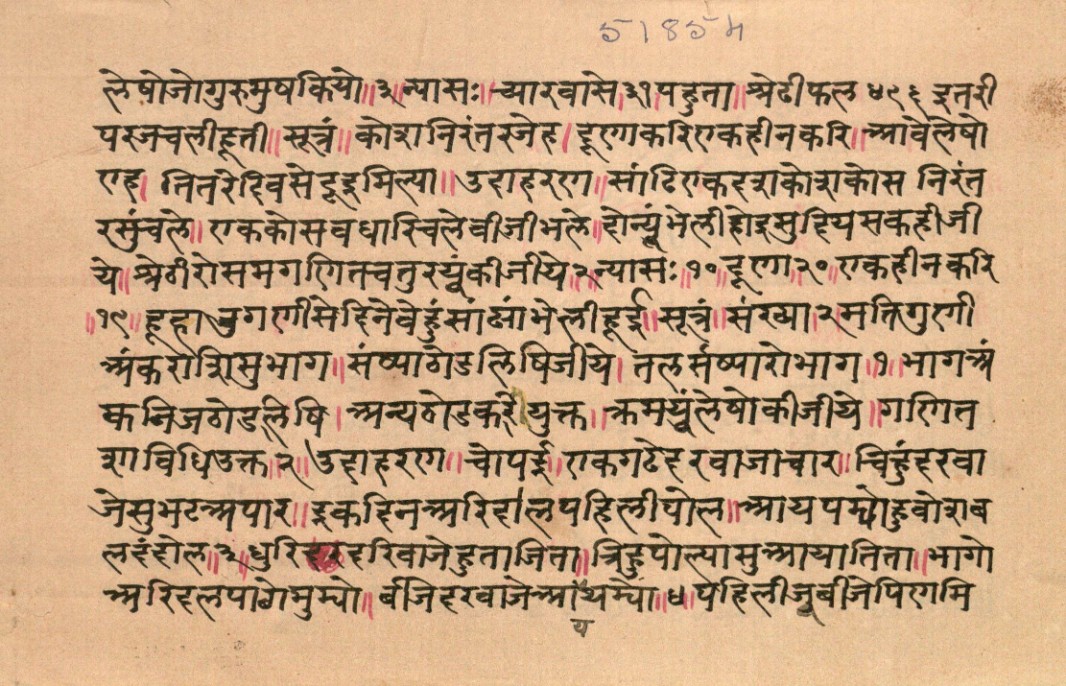 51854
लेषोजोगुरुमुषकियो॥३ न्यासः॥ च्यारवासे ३१ पहुता॥ श्रेढीफल ४९६ इतरी
परजचलीहूती॥ सूत्रं॥ कोशनिरंतरजेह। दूणाकरिएकहीनकरि॥ आवैलेषो
एह। तितरेदिवसेदूइमिल्या॥ उदाहरण॥ सांढिएकदशकोशकोस निरंत
रसुंचले॥ एककोसवधारिचलेबीजीभले॥ दोन्युंभेलीहोइसुदियसकहीजी
ये॥ श्रेढीरोसमगणितचतुरयुंकीजीये२ न्यासः॥१०॥ दूणा२० एकहीनकरि
॥१९॥ दूहा॥ उगणीसेदिनेवेहुंसांढांभेलीहूई॥ सूत्रं॥ संख्या२ मतिगुणी
अंकराशिसुभाग॥ संष्याठोडलिषिजीये। तलसंष्यारोभाग॥१॥ भागअं
कनिजठोडलिषि। अन्यठोडकरीयुक्त॥ क्रमयुंलेषोकीजीये॥ गणित
शविधिउक्त२॥ उदाहरण॥ चोपई॥ एकगढेदरवाजाचार॥ चिहुंदरवा
जेसुभटअपार॥ इकदिनअरिदलपहिलीपोल॥ आयपम्योहुवोशब
लदंदोल॥३॥ धुरिदरवाजेहुताजिता॥ त्रिहुपोल्यासुआयातिता॥ भागो
अरिदलपागेमुम्यो॥ बीजेदरवाजेआयम्यो॥४॥ पहिलीजूबीजेपिणमि
य